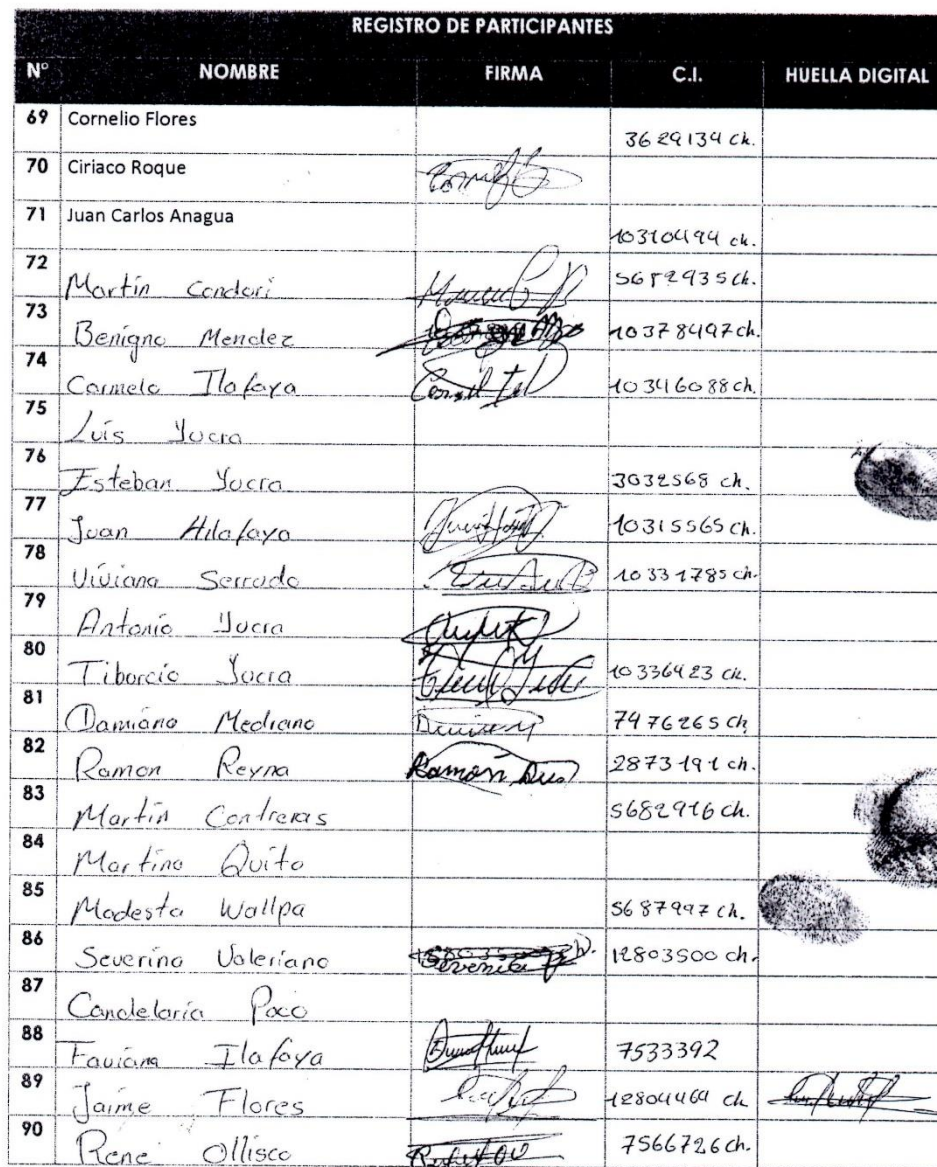 REGISTRO DE PARTICIPANTES
N° NOMBRE FIRMA C.I. HUELLA DIGITAL
69 Cornelio Flores 3629134 ch.
70 Ciriaco Roque
71 Juan Carlos Anagua 10310494 ch.
72 Martín Condori 5682935 ch.
73 Benigno Mendez 10378497 ch.
74 Carmelo Ilafaya 10346088 ch.
75 Luis Yucra
76 Esteban Yucra 3032568 ch.
77 Juan Hilafaya 10315565 ch.
78 Viviana Serrudo 10331785 ch.
79 Antonio Yucra
80 Tiborcio Yucra 10336423 ch.
81 Damiano Medrano 7476265 ch
82 Ramon Reyna Ramon 2873191 ch.
83 Martín Contreras 5682916 ch.
84 Martina Quito
85 Modesta Wallpa 5687997 ch.
86 Severino Valeriano 12803500 ch.
87 Candelaria Paco
88 Faviana Ilafaya 7533392
89 Jaime Flores 12804464 ch
90 Rene Ollisco 7566726 ch.